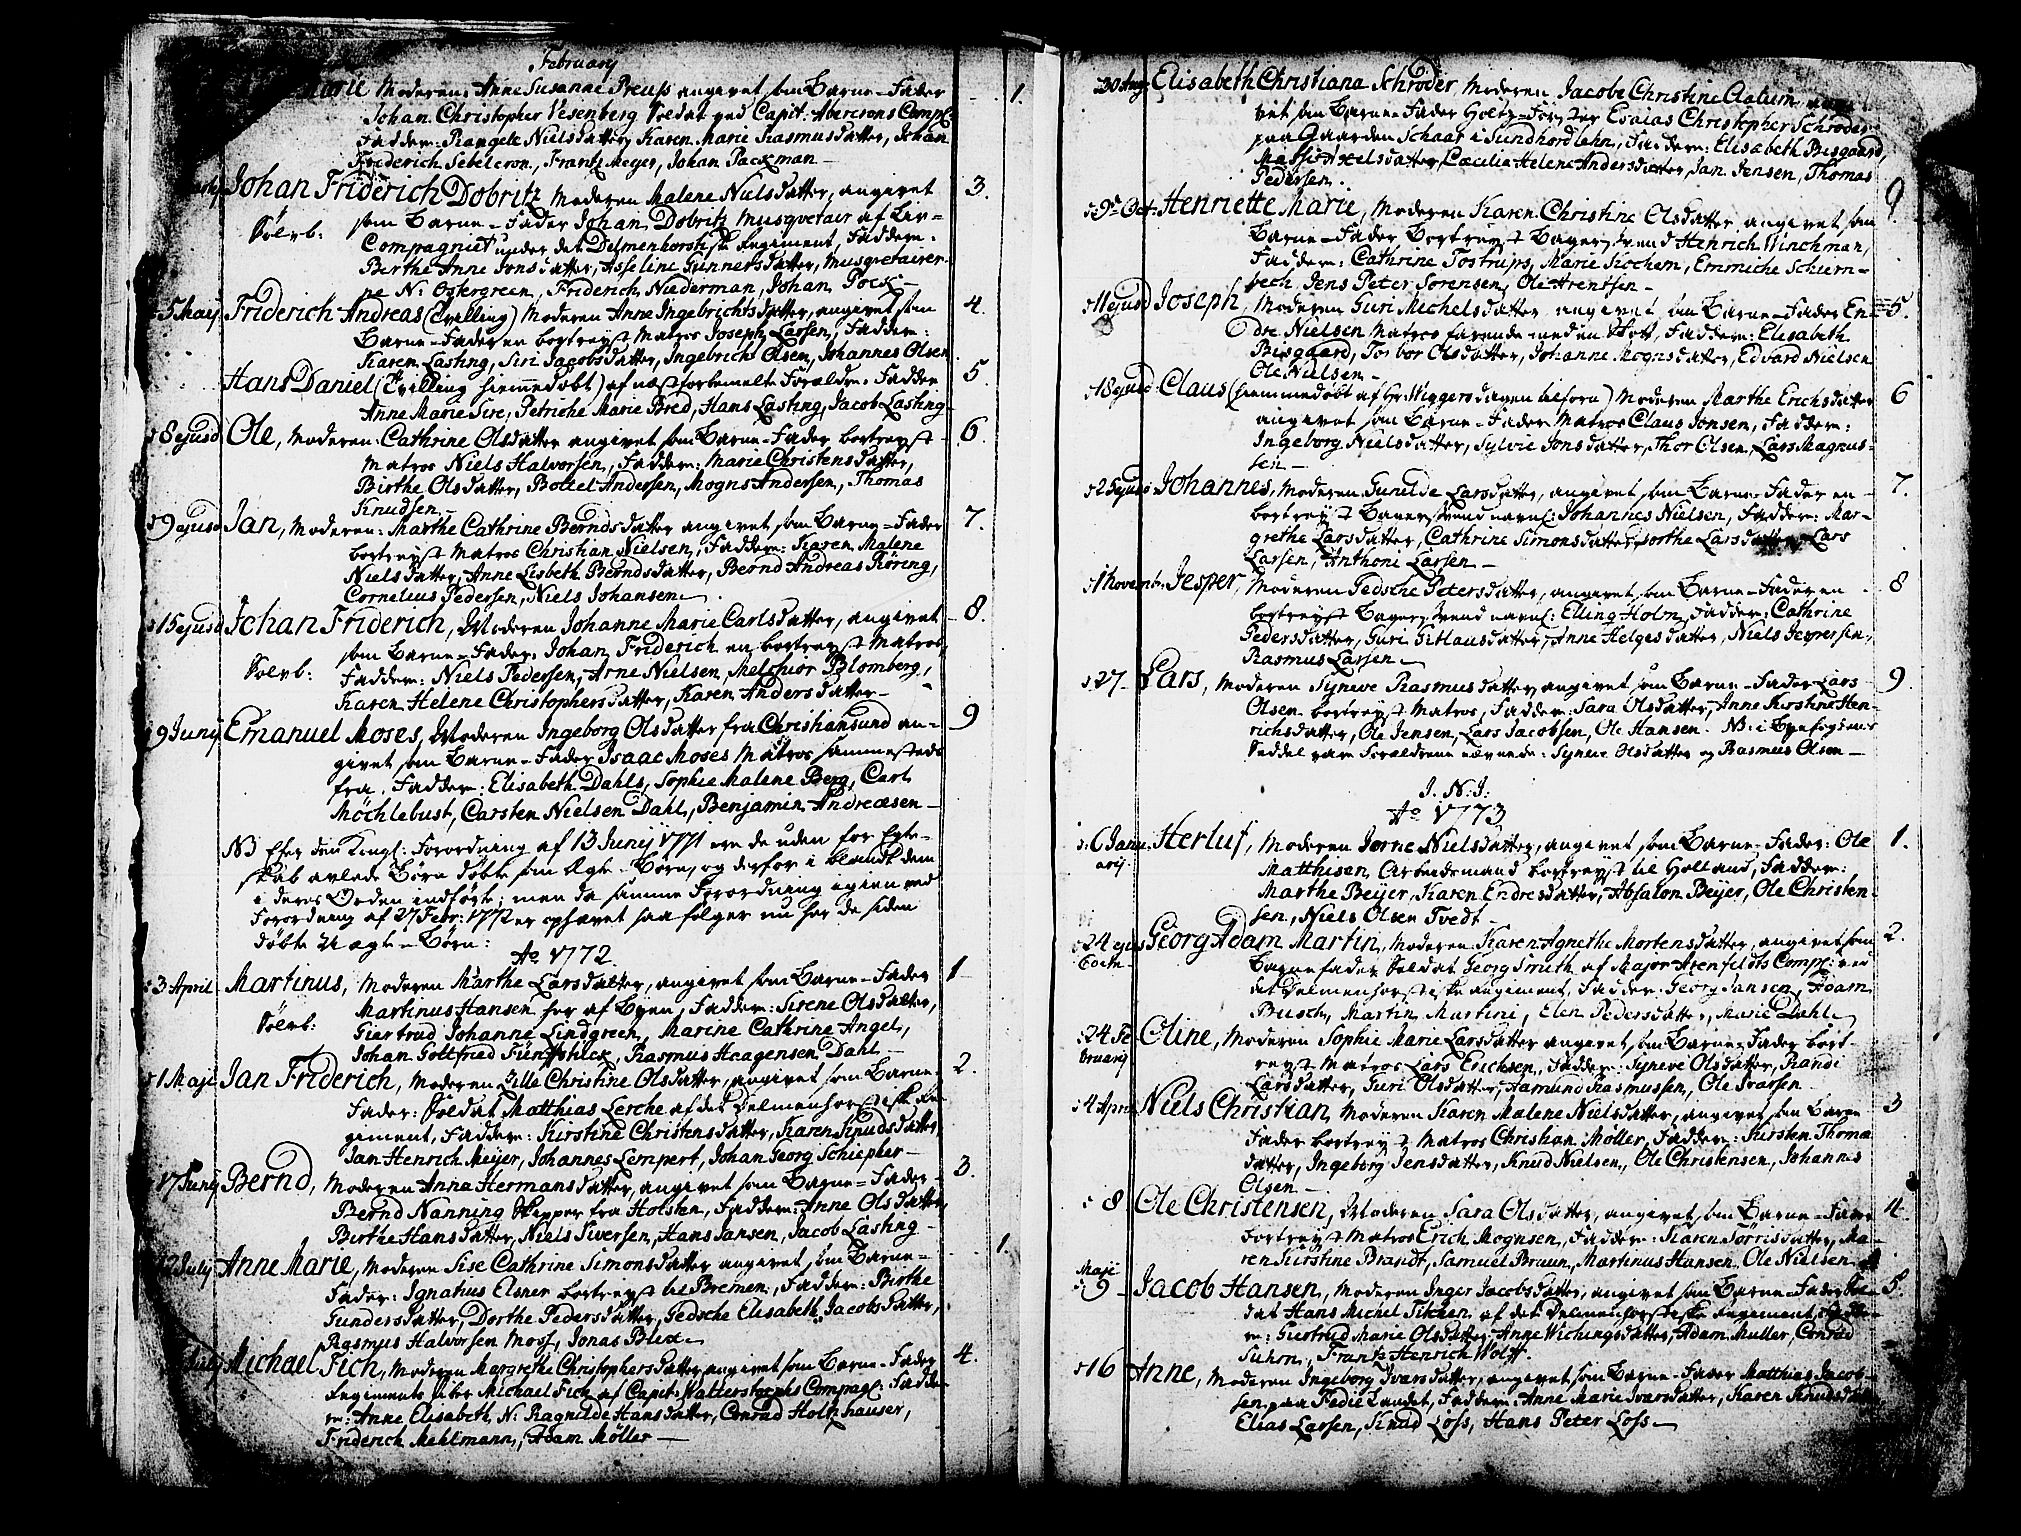 February
Marie Moderen: Anne Susanne Preuss angivet som Barne-Fader 1.
Johan Christopher Visenberg Soldat ved Capit: Abercrons Comp:
Faddere: Rangele Nielsdatter, Karen Marie Rasmusdatter, Johan
Friderich Sebelcron, Frantz Meyer, Johan Packman
Johan Friderich Dobritz Moderen Malene Nielsdatter, angivet 3.
som Barne-Fader Johan Dobritz Musqvetair af Liv-
Compagniet under det Delmenhorstiske Regiment, Faddere:
Berthe Anne Jonsdatter, Asseline Gunnersdatter, Musqvetairer-
ne N: Ostergreen, Friderich Niederman, Johan Pock
5 Maij Friderich Andreas (Tvilling) Moderen Anne Ingebrichtsdatter, angivet som 4.
Barne-Faderen bortreyst Matros Joseph Larsen, Faddere:
Karen Lasting, Siri Jacobsdatter, Ingebricht Olsen, Johannes Olsen
Hans Daniel (Tvilling hiemmedøbt) af næstforbemelte Forældre. Faddere 5.
Anne Marie Sire, Petriche Marie Bred, Hans Lasting, Jacob Lasting
8 ejusd Ole, Moderen: Cathrine Olsdatter angivet som Barne-Fader bortreyst 6.
Matros Niels Halvorsen, Faddere: Marie Christensdatter,
Birthe Olsdatter, Bottel Andersen, Mogns Andersen, Thomas
Knudsen
9 ejusd Jan, Moderen: Marthe Cathrine Berndsdatter angivet som Barne-Fader 7.
bortreyst Matros Christian Nielsen, Faddere: Karen Malene
Nielsdatter, Anne Lisbeth Berndsdatter, Bernd Andreas Röring,
Cornelius Pedersen, Niels Johansen
15 ejusd Johan Friderich, Moderen Johanne Marie Carlsdatter, angivet 8.
som Barne-Fader: Johan Friderich en bortreyst Matros,
Faddere: Niels Pedersen, Arne Nielsen, Melchior Blomberg,
Karen Helene Christophersdatter, Karen Andersdatter
9 Junij Emanuel Moses, Moderen Ingeborg Olsdatter fra Christiansund an- 9
givet som Barne-Fader Isaac Moses Matros sammesteds
fra. Faddere: Elisabeth Dahls, Sophie Malene Berg, Carl
Möchlebust, Carsten Nielsen Dahl, Benjamin Andreæsen
NB Efter den Kongl: Forordning af 13 Junij 1771 ere de uden for Egte-
skab avlede Børn døbte som Ægte-Børn, og derfor i blandt dem
i deres Orden indførte; men da samme Forordning igien ved
Forordning af 27 Febr: 1772 er ophævet saa følger nu her de siden
døbte Uægte-Børn:
Ao 1772.
3 April Martinus, Moderen Marthe Larsdatter, angivet som Barne-Fader 1
Martinus Hansen her af Byen, Faddere: Sirene Olsdatter,
Giertrud Johanne Lindgreen, Marine Cathrine Angel,
Johan Gottfried Fünfstück, Rasmus Haagensen Dahl
1 Maji Jan Friderich, Moderen Zille Christine Olsdatter, angivet som Barne- 2.
Fader: Soldat Matthias Lerche af det Delmenhorstiske Re-
giment, Faddere: Kirstine Christensdatter, Karen Knudsdatter,
Jan Henrich Meijer, Johannes Lempert, Johan Georg Schiepher
17 Junij Bernd, Moderen Anna Hermansdatter, angivet som Barne-Fader 3.
Bernd Nanning Skipper fra Holsten, Faddere: Anne Olsdatter,
Birthe Hansdatter, Niels Siversen, Hans Jansen, Jacob Lasting
12 July Anne Marie, Moderen Sise Cathrine Simonsdatter angivet som Barne- 1.
Fader: Ignatius Elsner bortreyst til Bremen, Faddere: Birthe
Gundersdatter, Dorthe Pedersdatter, Gedsche Elisabeth Jacobsdatter,
Rasmus Halvorsen Moss, Jonas Blix
July Michael Fich, Moderen Margrethe Christophersdatter, angivet som Barne-Fader 4.
Michael Fich af Capit: Compagn: Fadde-
re: Anne Elisabeth, N: Ragnilde Hansdatter, Conrad Holtzhauser,
Friderich Mehlmann, Adam Möller
30 Aug Elisabeth Christiana Schröder Moderen Jacobe Christine Clatum
vet som Barne-Fader Holtz-Forster Esaias Christopher Schröder
paa Gaarden Schaar i Sundhordlehn, Faddere: Elisabeth Bisgaard,
Cæcilia Helene Andersdatter, Jan Jensen, Thomas
Pedersen.
9de Oct. Henriette Marie, Moderen Karen Christine Olsdatter angivet som 9.
Barne-Fader bortreyst Bager-Svend Henrich Winchman,
Faddere: Cathrine Tostrups, Marie Kochem, Emmiche Schiern-
bech, Jens Peter Sörensen, Ole Arentsen
11 ejusd Joseph, Moderen Guri Michelsdatter angivet som Barne-Fader En- 5.
dre Nielsen Matros farende med en Skott, Faddere: Elisabeth
Bisgaard, Torbor Olsdatter, Johanne Mognsdatter, Edvard Nielsen
Ole Nielsen
18 ejusd Claus (hiemmedøbt af Hr: Wiggers dagen tilforn) Moderen Marthe Erichsdatter 6
angivet som Barne-Fader Matros Claus Jonsen, Faddere:
Ingeborg Nielsdatter, Sylvie Jonsdatter, Thor Olsen, Lars Magnus-
sen
25 ejusd Johannes, Moderen Gunilde Larsdatter, angivet som Barne-Fader en 7.
bortreyst Bagersvend navnl: Johannes Nielsen, Faddere: Mar-
grethe Larsdatter, Cathrine Simonsdatter, Dorthe Larsdatter, Lars
Larsen, Anthoni Larsen
1 Novembr. Jesper, Moderen Gedsche Petersdatter, angivet som Barne-Fader en 8
bortreyst Bagersvend navnl: Elling Holm, Faddere: Cathrine
Pedersdatter, Guri Gitlausdatter, Anne Helgesdatter, Niels Jespersen,
Rasmus Larsen
27 Lars, Moderen Syneve Rasmusdatter, angivet som Barne-Fader Lars 9
Olsen bortreyst Matros, Faddere: Sara Olsdatter, Anne Kirstine Hen-
richsdatter, Ole Jensen, Lars Jacobsen, Ole Hansen. NB: i Byefogdens
Seddel vare Forældrene nævnede: Syneve Olsdatter og Rasmus Olsen
I. N. J:
Ao 1773
6 Janu- Herluf, Moderen Jorne Nielsdatter, angivet som Barne-Fader: Ole 1.
arij.
Matthisen, Arbeidsmand bortreyst til Holland, Faddere:
Marthe Beijer, Karen Endresdatter, Absalon Beijer, Ole Christen-
sen, Niels Olsen Tvedt
24 ejus Georg Adam Martin, Moderen Karen Agnethe Mortensdatter, angivet som 2.
Eodem
Barnefader Soldat Georg Smith af Major Arenfeldts Comp: ved
det Delmenhorstiske Regiment, Faddere: Georg Jansen, Adam
Busch, Martin Martini, Elen Pedersdatter, Marie Dahl
24 Fe- Oline, Moderen Sophie Marie Larsdatter angivet som Barne-Fader bort-
bruarij
reyst Matros Lars Erichsen, Faddere: Syneve Olsdatter, Randi
Larsdatter, Guri Olsdatter, Aamund Rasmussen, Ole Ivarsen
4 April Niels Christian, Moderen Karen Malene Nielsdatter, angivet som Barne- 3
Fader bortreyst Matros Christian Møller, Faddere: Kirsten Thomæ-
datter, Ingeborg Jensdatter, Knud Nielsen, Ole Christensen, Johannes
Olsen
8 Ole Christensen, Moderen Sara Olsdatter, angivet som Barne-Fader 4.
bortreyst Matros Erich Mognsen, Faddere: Karen Torrisdatter, Ma-
ren Kirstine Brandt, Samuel Bruun, Martinus Hansen, Ole Nielsen
Maji
9 Jacob Hansen, Moderen Inger Jacobsdatter, angivet som Barne-Fader Sol- 5.
dat Hans Michel Ticksen af det Delmenhorstiske Regiment, Fadde-
re: Giertrud Marie Olsdatter, Anne Wichingsdatter, Adam Muller, Conrad
Suhon, Frantz Henrich Wolff.
16 Anne, Moderen Ingeborg Ivarsdatter, angivet som Barne-Fader Matthias Jacob-
sen paa Fedie Landet, Faddere: Anne Marie Ivarsdatter, Karen Knudsdatter
Elias Larsen, Knud Loss, Hans Peter Loss